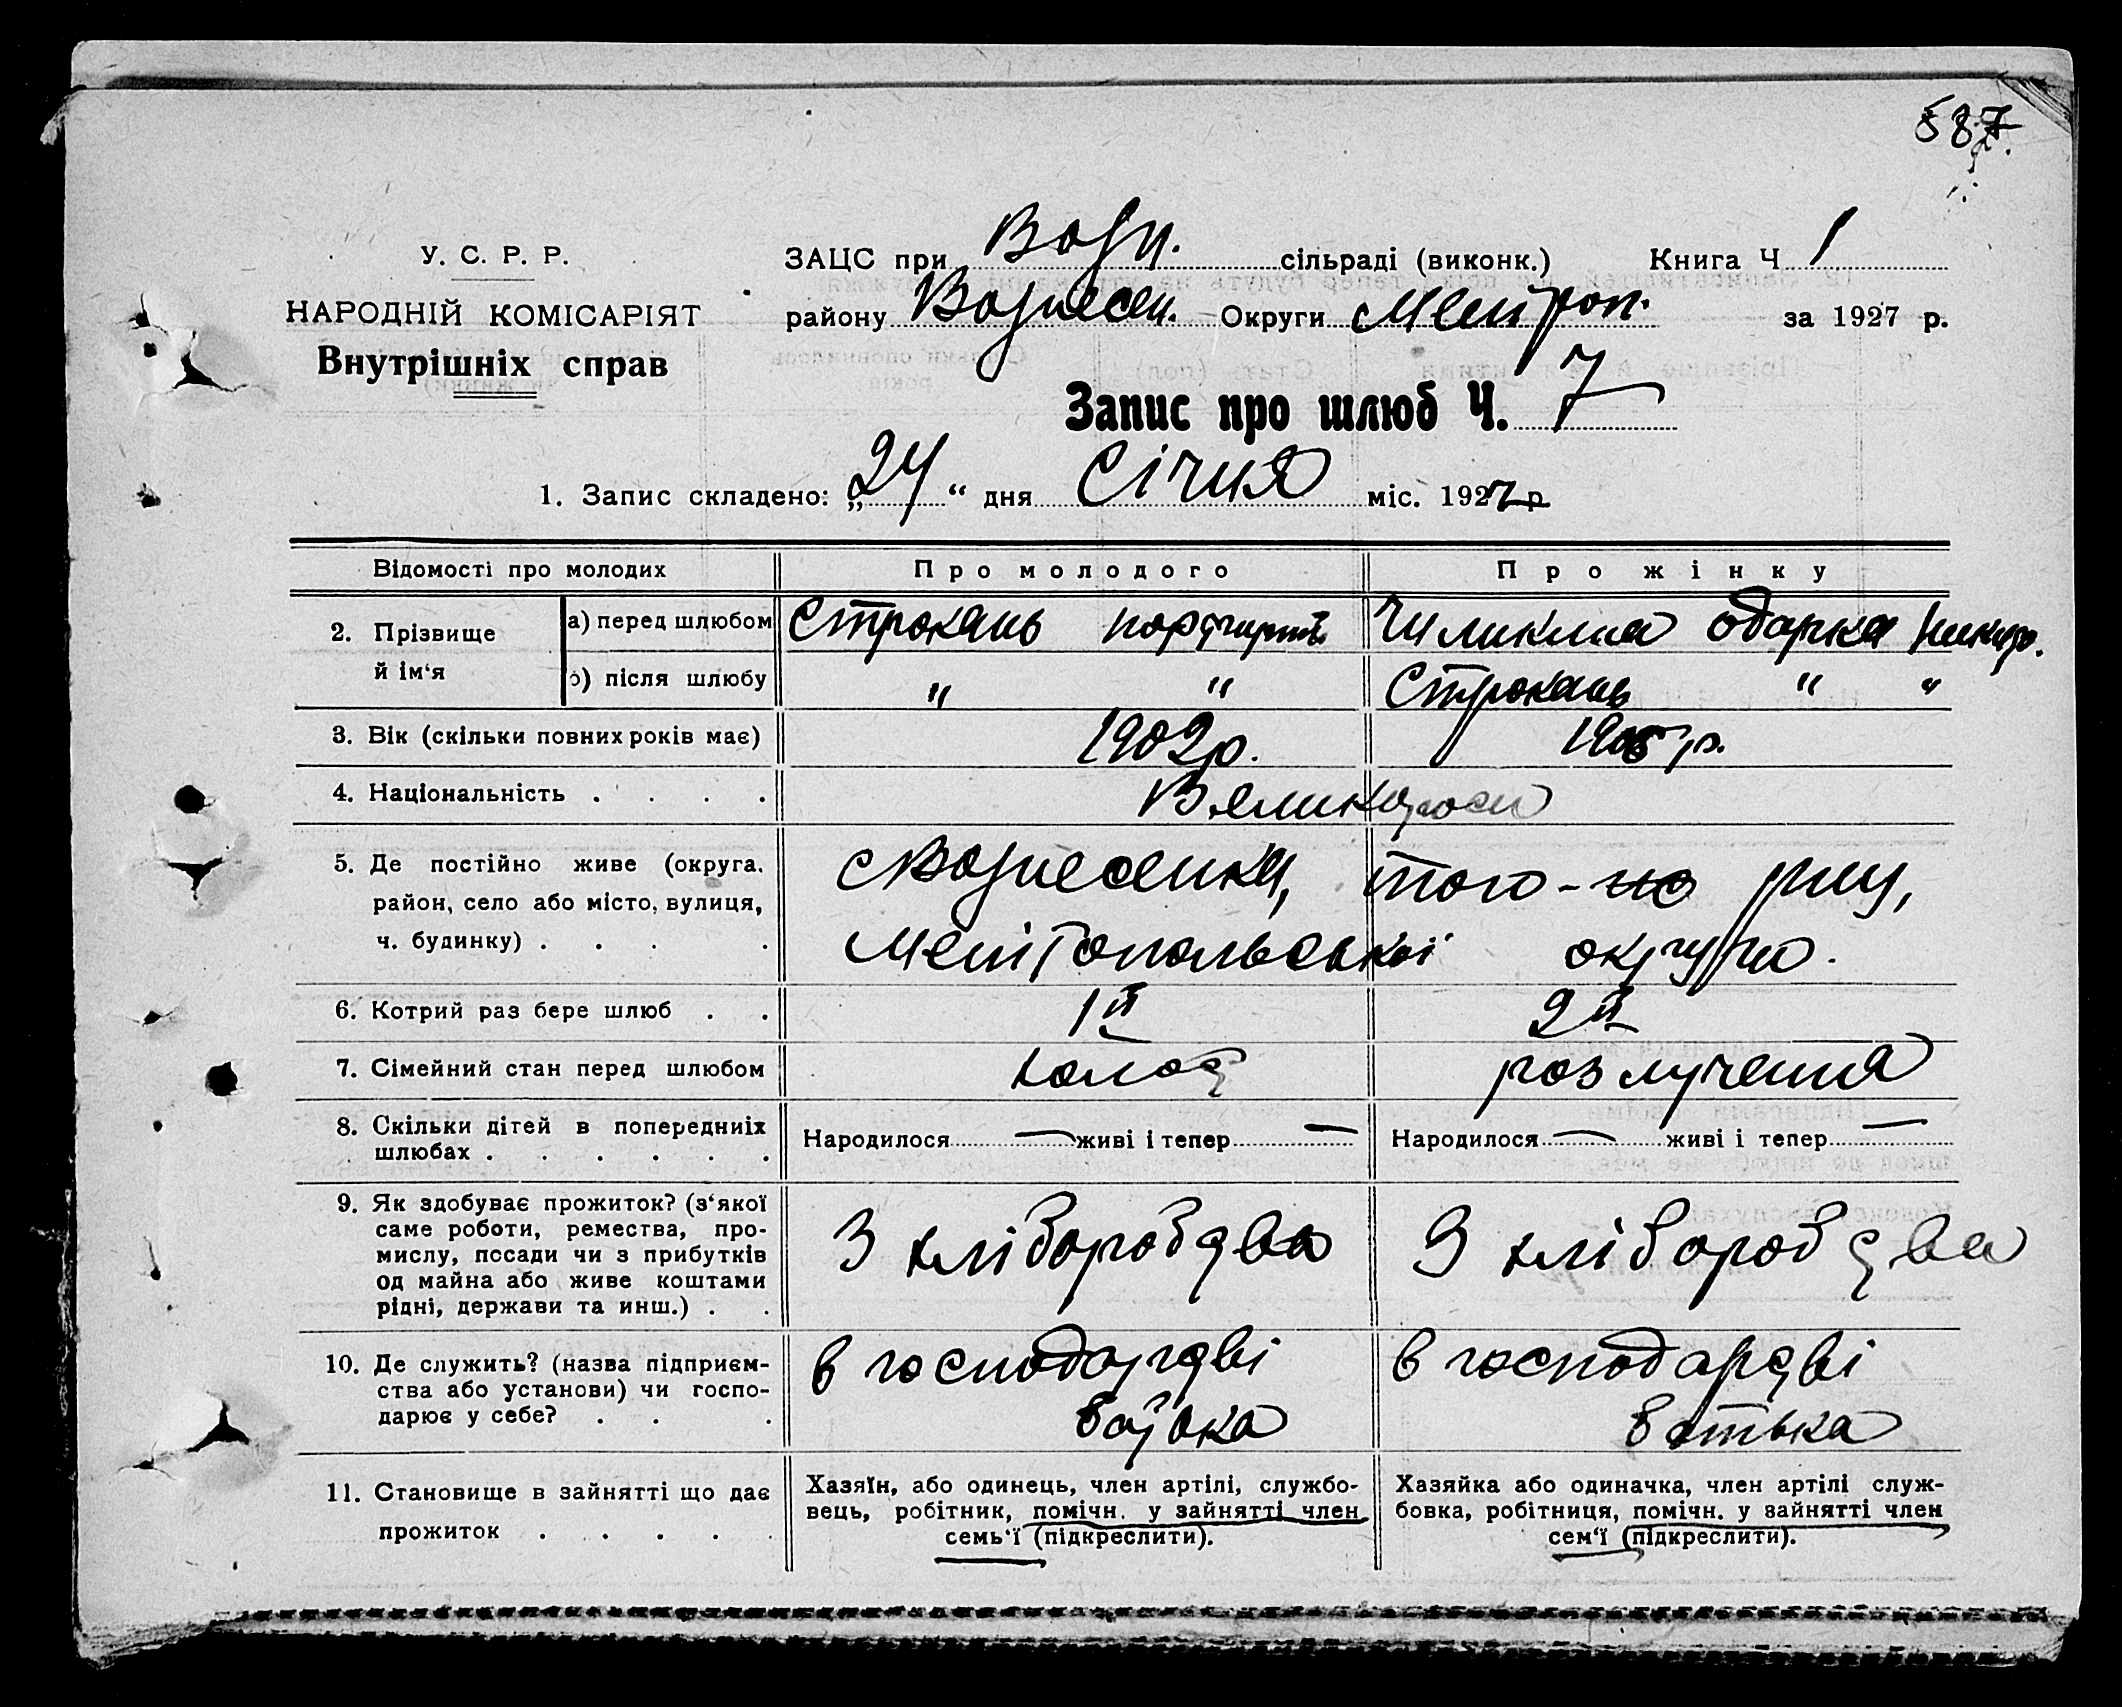 587
У. С. Р. Р.
НАРОДНІЙ КОМІСАРІЯТ
Внутрішніх справ
ЗАЦС при Возн. сільраді (виконк.) Книга Ч 1
району Вознесен. Округи Мелітоп. за 1927 р.
Запис про шлюб Ч. 7
1. Запис складено: „24“ дня Січня міс. 1927 р
Відомості про молодих Про молодого Про жінку
2. Прізвище й ім‘я
а) перед шлюбом Строкань Чиликина Одарка Никиф.
б) після шлюбу " " Строкань " "
3. Вік (скільки повних років має) 1902р. 1905р.
4. Національність . . . . Великороси
5. Де постійно живе (округа, район, село або місто, вулиця, ч. будинку) . . . .
с Вознесенка, того-ж р-ну,
Мелітопольської округи.
6. Котрий раз бере шлюб . . 1й 2й
7. Сімейний стан перед шлюбом холост розлучення
8. Скільки дітей в попередниіх шлюбах . . . . . .
Народилося — живі і тепер — Народилося — живі і тепер —
9. Як здобуває прожиток? (з‘якої саме роботи, ремества, промислу, посади чи з прибутків од майна або живе коштами рідні, держави та инш.) . .
З хліборобства З хліборобства
10. Де служить? (назва підприєм-
ства або установи) чи госпо-
дарює у себе? . . .
в господарстві в господарстві
батька батька
11. Становище в зайнятті що дає
прожиток . . . . .
Хазяїн, або одинець, член артілі, службо-
вець, робітник, помічн. у зайнятті член
семь‘ї (підкреслити).
Хазяйка або одиначка, член артілі служ-
бовка, робітниця, помічн. у зайнятті член
сем‘ї (підкреслити).